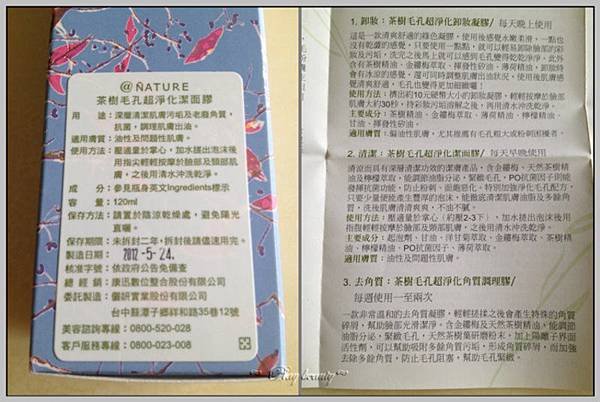 @ÑATURE
茶樹毛孔超淨化潔面膠
用　　途：深層清潔肌膚污垢及老廢角質，
抗菌，調理肌膚出油。
適用膚質：油性及問題性肌膚。
使用方法：壓適量於掌心，加水搓出泡沫後
用指尖輕輕按摩於臉部及頸部肌
膚，之後用清水沖洗乾淨。
成　　分：參見瓶身英文Ingredients標示
容　　量：120ml
保存方法：請置於陰涼乾燥處，避免陽光
直曬。
保存期限：未拆封二年，拆封後請儘速用完。
製造日期：2012-5-24.
核准字號：依政府公告免備查
總 經 銷：康迅數位整合股份有限公司
委託製造：儷研實業股份有限公司
台中縣潭子鄉祥和路35巷12號
美容諮詢專線：0800-520-028
客戶服務專線：0800-023-008
1. 卸妝：茶樹毛孔超淨化卸妝凝膠/ 每天晚上使用
這是一款清爽舒適的綠色凝膠，使用後感覺水嫩柔滑，一點也
沒有乾澀的感覺，只要使用一點點，就可以輕易卸除臉部的彩
妝及污垢，洗完之後馬上就可以感到毛孔變得乾乾淨淨，此外
含有茶樹精油、金縷梅萃取、揮發性矽油、薄荷精油，卸妝時
會有冰涼的感覺，還可同時調整肌膚出油狀況，使用後肌膚感
覺清爽舒適，毛孔也變得更加細緻喔！
使用方法：擠出約10元硬幣大小的卸妝凝膠，輕輕按摩於臉部
肌膚大約30秒，待彩妝污垢溶解之後，再用清水沖洗乾淨。
主要成分：茶樹精油、金縷梅萃取、薄荷精油、檸檬精油、
甘油、揮發性矽油。
適用膚質：偏油性肌膚，尤其推薦有毛孔粗大或粉刺困擾者。
2. 清潔：茶樹毛孔超淨化潔面膠/ 每天早晚使用
清涼而具有深層清潔功效的潔膚產品，含金縷梅、天然茶樹精
油及檸檬萃取，能調節油脂分泌，緊緻毛孔，PO抗菌因子則能
發揮抗菌功能，防止粉刺、面皰惡化。特別加強淨化毛孔配方，
只要少量便能產生豐厚的泡沫，能徹底清潔肌膚油脂及多餘角
質，洗後肌膚清清爽爽，不油不膩。
使用方法：壓適量於掌心（約壓2-3下），加水搓出泡沫後用
指腹輕輕按摩於臉部及頸部肌膚，之後用清水沖洗乾淨。
主要成分：起泡劑、甘油、洋甘菊萃取、金縷梅萃取、茶樹精
油、檸檬精油、PO抗菌因子、薄荷萃取。
適用膚質：油性及問題性肌膚。
3. 去角質：茶樹毛孔超淨化角質調理膠/
每週使用一至兩次
一款非常溫和的去角質凝膠，輕輕搓揉之後會產生特殊的角質
碎屑，幫助臉部光滑潔淨。含金縷梅及天然茶樹精油，能調節
油脂分泌，緊緻毛孔，天然茶樹葉研磨粉末，加上陽離子界面
活性劑，可以幫助吸附多餘角質污垢，形成角質碎屑，而加強
去除多餘角質，防止毛孔阻塞，幫助毛孔緊緻。